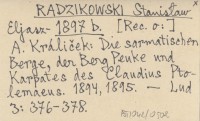 RADZIKOWSKI Stanisław
Eljasz - 1897 b. [Rec. o:]
A. Králiček: Die sarmatischen
Berge, der Berg Peuke und
Karpates des Claudius Pto-
lemaeus. 1894, 1895. — Lud
3: 376-378.